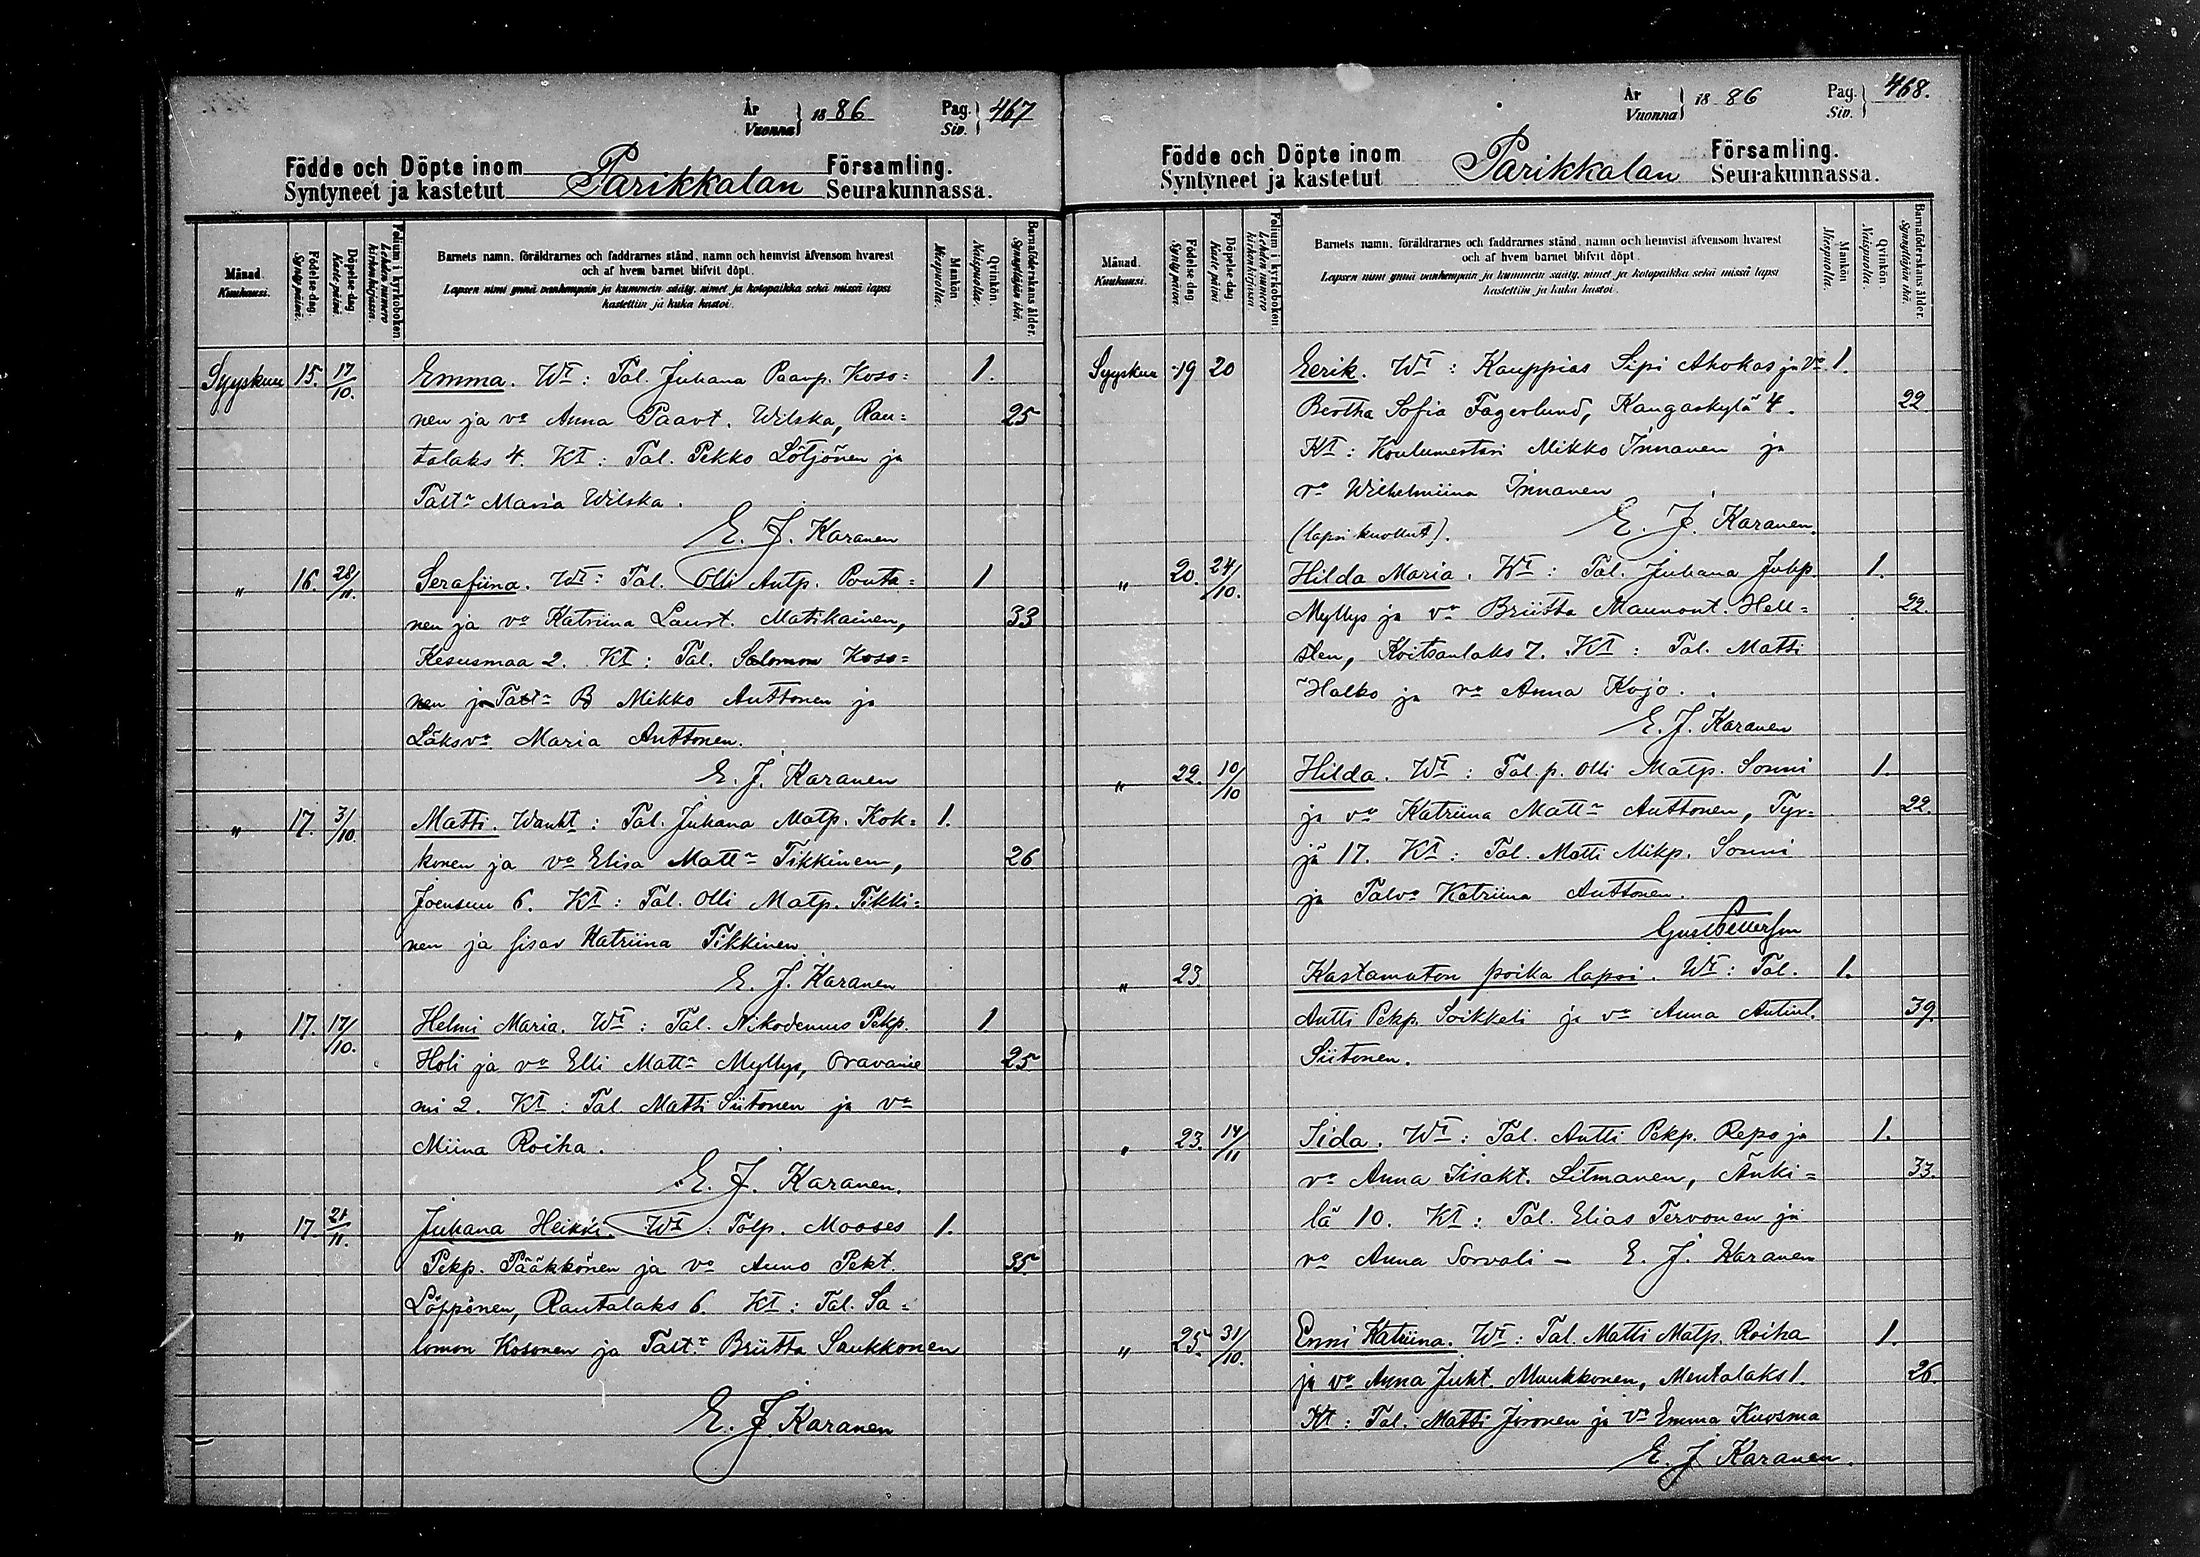 År
Vuonna } 1886 Pag.
Siv. } 467
Födde och Döpte inom Parikkalan Församling.
Syntyneet ja kastetut Seurakunnassa.
Månad. Kuukausi.
Födelse-dag. Syntypäivä.
Döpelse-dag. Kaste päivä.
Folium i kyrkoboken Lehden numero kirkonkirjassa.
Barnets namn, föräldrarnes och faddrarnes stånd, namn och hemvist äfvensom hvarest
och af hvem barnet blifvit döpt.
Lapsen nimi ynnä vanhempain ja kummein sääty, nimet ja kotopaikka sekä missä lapsi
kastettiin ja kuka kastoi.
Mankön Miespuolia.
Qvinkön. Naispuolia.
Barnaföderskans ålder. Synnyttäjän ikä.
Syyskuu 15. 17/10. Emma. Wt: Tal. Juhana Paavp. Koso= 1.
nen ja vo Anna Paavt. Wilska, Rau= 25
talaks 4. Kt: Tal. Pekko Lötjönen ja
Taltr Maria Wilska.
E. J. Karanen
" 16. 28/11. Serafiina. Wt: Tal. Olli Antp. Pouta= 1
nen ja vo Katriina Laurt. Matikainen, 33
Kesusmaa 2. Kt: Tal. Salomon Koso=
nen ja Mikko Anttonen ja
Läksvo Maria Anttonen.
E. J. Karanen
" 17. 3/10. Matti. Wanht: Tal. Juhana Matp. Kok= 1.
konen ja vo Elisa Mattr Tikkinen, 26
Joensuu 6. Kt: Tal. Olli Matp. Tikki=
nen ja sisar Katriina Tikkinen
E. J. Karanen
" 17. 17/10. Helmi Maria. Wt: Tal. Nikodemus Pekp. 1
Holi ja vo Elli Mattr Myllys, Oravanie 25
mi 2. Kt: Tal. Matti Siitonen ja vo
Miina Roiha.
E. J. Karanen.
" 17. 21/11. Juhana Heikki. Wt: Talp. Mooses 1.
Pekp. Pääkkönen ja vo Anna Pekt. 35
Löppönen, Rautalaks 6. Kt: Tal. Sa=
lomon Kosonen ja Taltr Briitta Saukkonen
E. J. Karanen
År
Vuonna } 1886 Pag.
Siv. } 468.
Födde och Döpte inom Parikkalan Församling.
Syntyneet ja kastetut Seurakunnassa.
Månad. Kuukausi.
Födelse-dag. Syntypäivä.
Döpelse-dag. Kaste päivä.
Folium i kyrkoboken Lehden numero kirkonkirjassa.
Barnets namn, föräldrarnes och faddrarnes stånd, namn och hemvist äfvensom hvarest
och af hvem barnet blifvit döpt.
Lapsen nimi ynnä vanhempain ja kummein sääty, nimet ja kotopaikka sekä missä lapsi
kastettiin ja kuka kastoi.
Mankön Miespuolia.
Qvinkön. Naispuolia.
Barnaföderskans ålder. Synnyttäjän ikä.
Syyskuu 19 20 Eerik. Wt: Kauppias Sipi Ahokas ja Vo 1.
Bertha Sofia Fagerlund, Kangaskylä 4. 22
Kt: Koulumestari Mikko Innanen ja
vo Wilhelmiina Innanen
(lapsi kuollut). E. J. Karanen
" 20. 24/10. Hilda Maria. Wt: Tal. Juhana Juhp. 1.
Myllys ja vo Briitta Maunont. Hell= 22.
sten, Koitsanlaks 7. Kt: Tal. Matti
Halko ja vo Anna Kojo.
E. J. Karanen
" 22. 10/10 Hilda. Wt: Tal. p. Olli Matp. Sonni 1.
ja vo Katriina Mattr Anttonen, Tyr= 22.
jä 17. Kt: Tal. Matti Mikp. Sonni
ja Talvo Katriina Anttonen.
Gust Petterson
" 23. Kastamaton poika lapsi. Wt: Tal. 1.
Antti Pekp. Soikkeli ja vo Anna Antint. 39.
Siitonen.
" 23. 14/11 Iida. Wt: Tal. Antti Pekp. Repo ja 1.
vo Anna Iisakt. Litmanen, Änki= 33.
lä 10. Kt: Tal. Elias Tervonen ja
vo Anna Sorvali – E. J. Karanen
" 25. 31/10. Enni Katriina. Wt: Tal. Matti Matp. Roiha 1.
ja vo Anna Juht. Muukkonen, Mentalaks 1. 26.
Kt: Tal. Matti Jironen ja Vo Emma Kuosma
E. J Karanen.